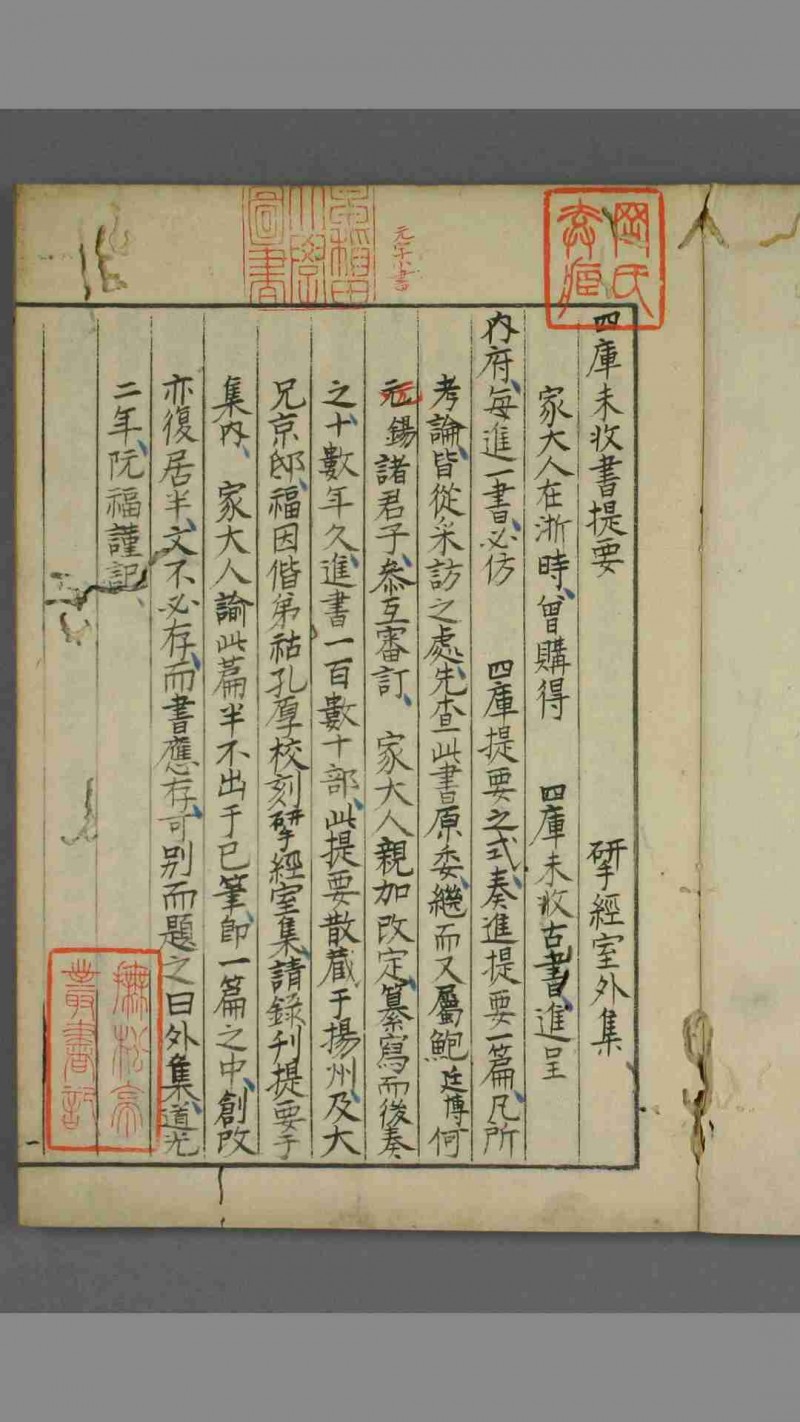 四庫未收書提要 揅經室外集
家大人在浙時、曾購得 四庫未收古書、進呈
內府、每進一書、必仿 四庫提要之式、奏進提要一篇、凡所
考論、皆從采訪之處、先查此書原委、繼而又屬鮑廷博何
元錫諸君子、叅互審訂、 家大人親加改定、纂寫而後奏
之、十數年久、進書一百數十部、此提要散藏于揚州、及大
兄京邸、福因偕弟祜孔厚校刻揅經室集、請錄刊提要于
集內、 家大人諭此篇半不出于已筆、即一篇之中、創改
亦復居半、文不必存、而書應存、可别而題之曰外集、道光
二年、阮福謹記、
一
岡氏
早稻田大學圖書
撫松亭叢書記